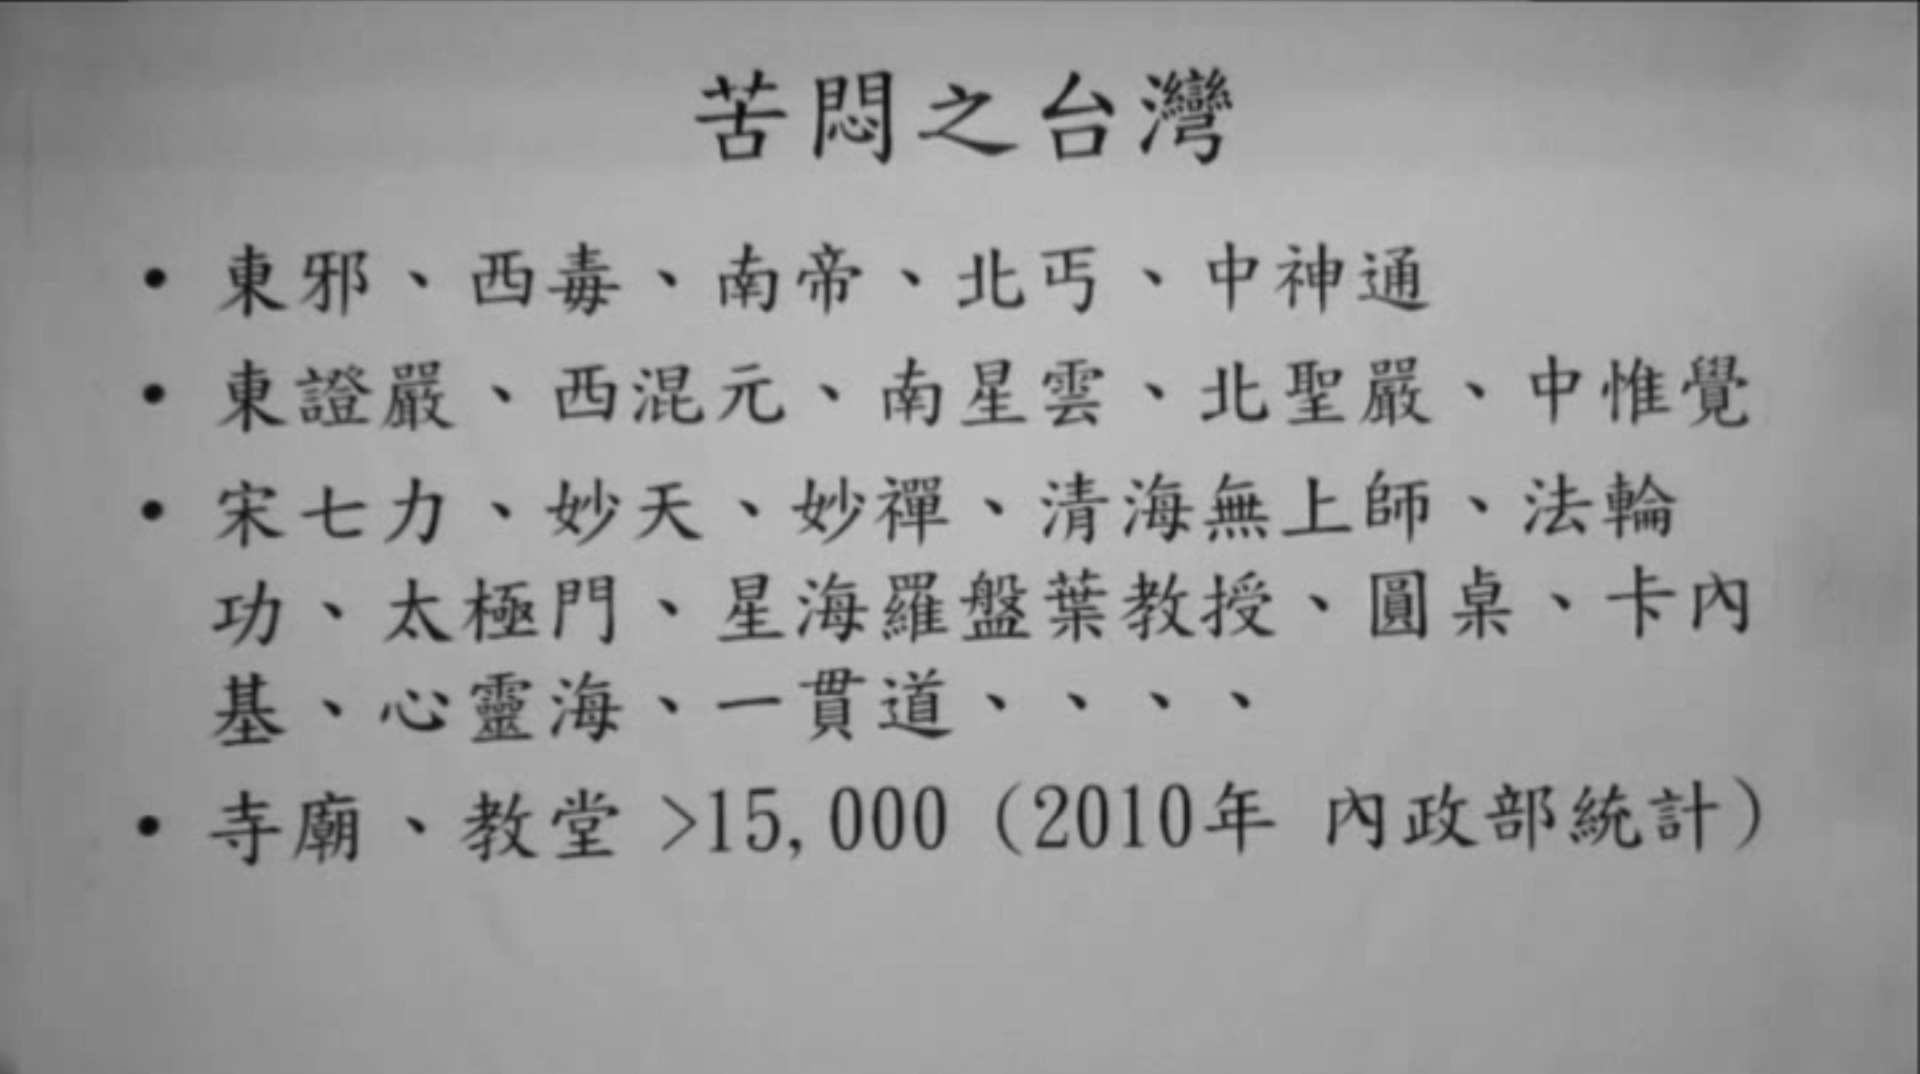 苦悶之台灣
• 東邪、西毒、南帝、北丐、中神通
• 東證嚴、西混元、南星雲、北聖嚴、中惟覺
• 宋七力、妙天、妙禪、清海無上師、法輪
功、太極門、星海羅盤葉教授、圓桌、卡內
基、心靈海、一貫道、、、、
• 寺廟、教堂 >15,000 (2010年 內政部統計)